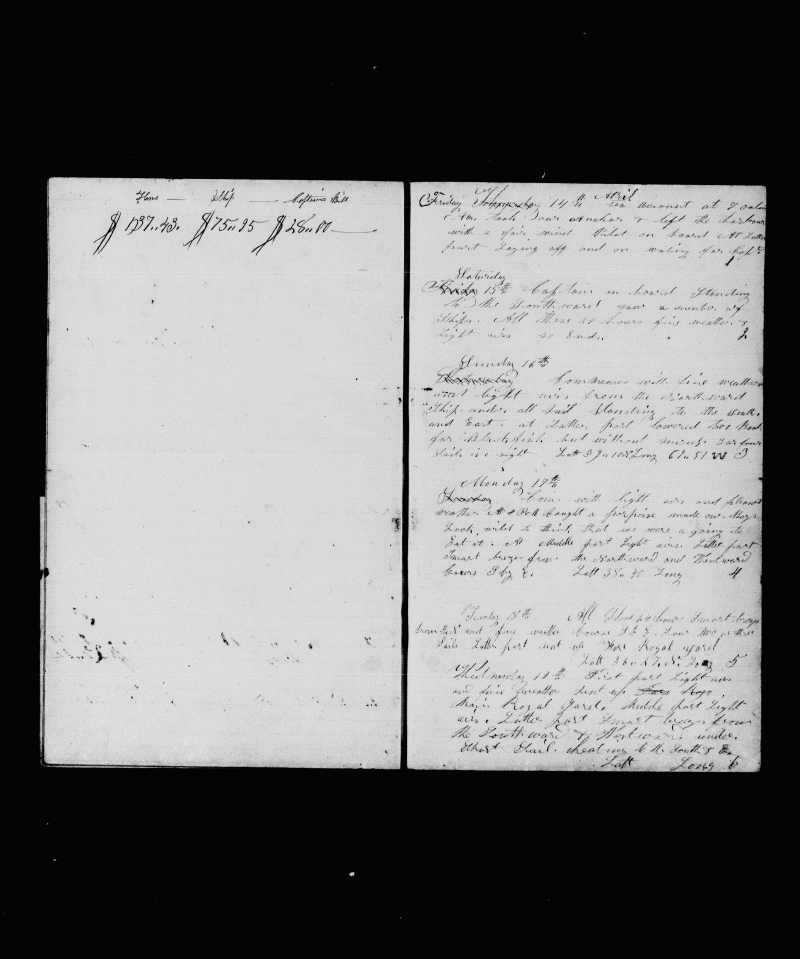 Ship Captains Bill
$ 137.. 43. $ 75.. 95 $ 28.. 00
Friday Thursday 14th April Sea account at 7 oclock
A.m. took our Anchor & left the harbour
with a fair wind Pilot on board At Latter
part Laying off and on waiting for Capt.
1
Saturday
Friday 15th Captain on board Standing
to the Southward saw a number of
Ships. All these 24 hours fine weather &
Light airs so Ends. 2
Sunday 16th
Saturday Commences with fine weather
and light airs from the Northward
Ship under all Sail Standing to the South
and East. at Latter part lowered two Boats
for Blackfish but without success
Sails in sight Latt Long W 3
Monday 17th
Sunday Com. with light airs and pleasant
weather At 4 P.M. Caught a porpoise made our Boys
Look wild to think that we were a going to
Eat it. At Middle part Light airs. Latter part
Smart breezes from the Northward and Westward
Course S by E. Latt 38.. 40 Long 4
Tuesday 18th All these 24 hours Smart breezes
and fine weather Course S & E. Saw two or three
Sails Latter part sent up Fore Royal yard
Latt 36.. 27.. N. Long 5
Wednesday 19th First part Light airs
and fine weather sent up
Main Royal Yard. Middle part Light
airs. Latter part Smart breezes from
the Southward & Westward under
Short Sail. South & E.
Latt Long 6